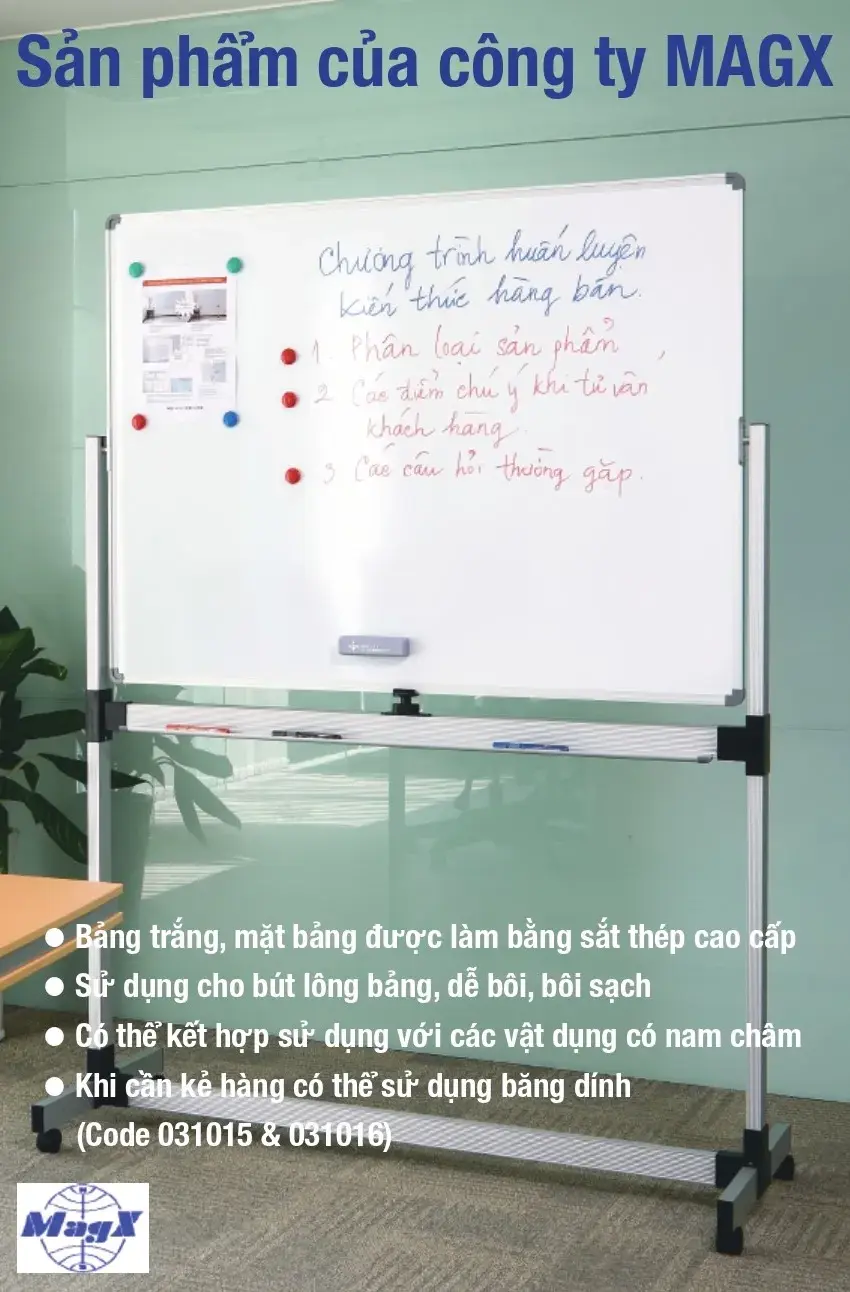 Sản phẩm của công ty MAGX
Chương trình huấn luyện
kiến thức hàng bán.
1. Phân loại sản phẩm
2 Các điểm chú ý khi tư vấn
khách hàng.
3 Các câu hỏi thường gặp.
● Bảng trắng, mặt bảng được làm bằng sắt thép cao cấp
● Sử dụng cho bút lông bảng, dễ bôi, bôi sạch
● Có thể kết hợp sử dụng với các vật dụng có nam châm
● Khi cần kẻ hàng có thể sử dụng băng dính
(Code 031015 & 031016)
MagX